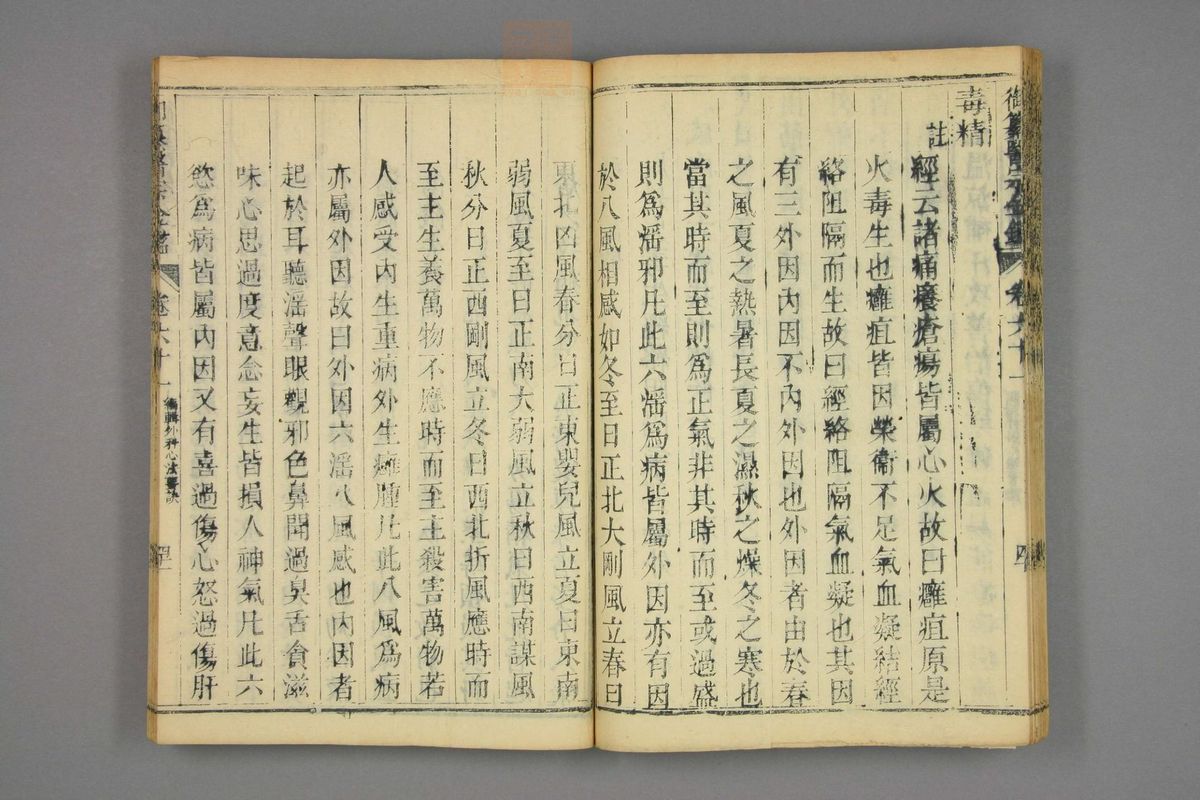 御纂醫宗金鑑 卷六十一 四
毒精
註
經云諸痛癢瘡瘍皆屬心火故曰癰疽原是
火毒生也癰疽皆因榮衛不足氣血凝結經
絡阻隔而生故曰經絡阻隔氣血凝也其因
有三外因內因不內外因也外因者由於春
之風夏之熱暑長夏之濕秋之燥冬之寒也
當其時而至則爲正氣非其時而至或過盛
則爲滛邪凡此六滛爲病皆屬外因亦有因
於八風相感如冬至日正北大剛風立春日
東北凶風春分日正東嬰兒風立夏日東南
弱風夏至日正南大弱風立秋日西南謀風
秋分日正西剛風立冬日西北折風應時而
至主生養萬物不應時而至主殺害萬物若
人感受內生重病外生癰腫凡此八風爲病
亦屬外因故曰外因六滛八風感也內因者
起於耳聽滛聲眼觀邪色鼻聞過臭舌貪滋
味心思過度意念妄生皆損人神氣凡此六
慾爲病皆屬內因又有喜過傷心怒過傷肝
醫宗金鑑 卷六十一 編輯外科心法要訣